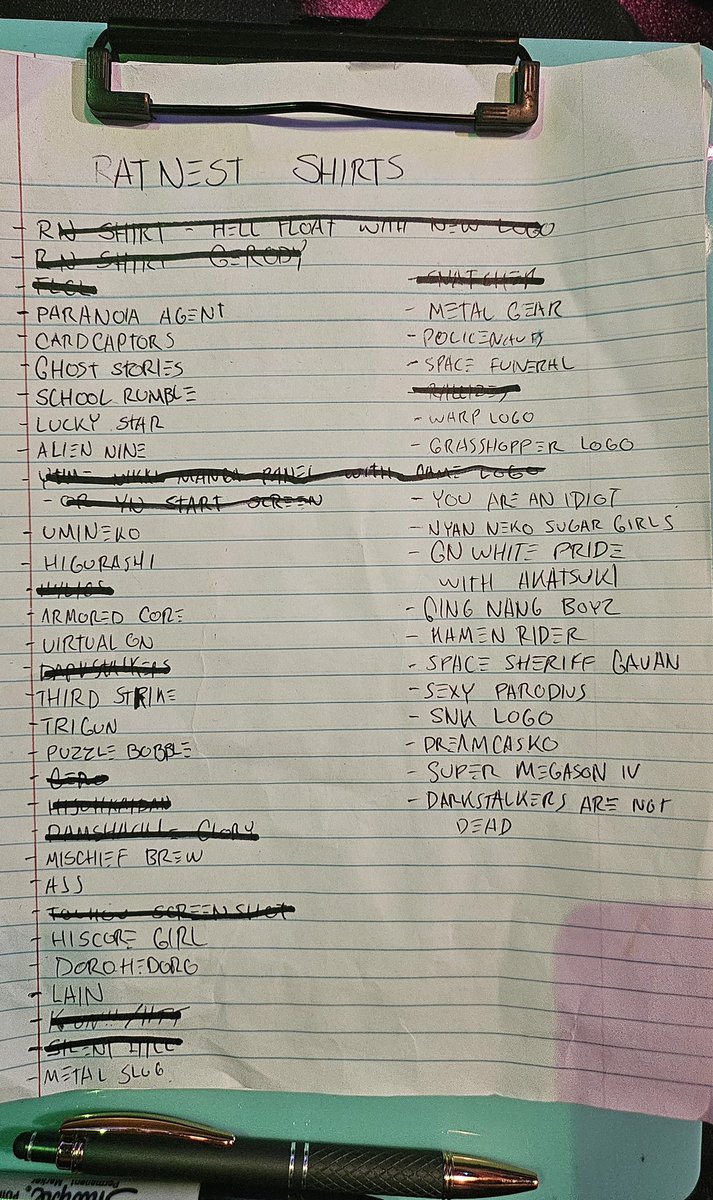 RATNEST SHIRTS
- RN SHIRT - HELL FLOAT WITH NEW LOGO
- RN SHIRT GERODY
- FLCL
- PARANOIA AGENT
- CARDCAPTORS
- GHOST STORIES
- SCHOOL RUMBLE
- LUCKY STAR
- ALIEN NINE
- YUME NIKKI MANGA PANEL WITH GAME LOGO
- OR YN START SCREEN
- UMINEKO
- HIGURASHI
- ARMORED CORE
- VIRTUAL ON
- DARKSTALKERS
- THIRD STRIKE
- TRIGUN
- PUZZLE BOBBLE
- RAMSHACKLE GLORY
- MISCHIEF BREW
- AJJ
- TOUHOU SCREENSHOT
- HISCORE GIRL
- DOROHEDORO
- LAIN
- SILENT HILL
- METAL SLUG
- SNATCHER
- METAL GEAR
- POLICENAUTS
- SPACE FUNERAL
- WARP LOGO
- GRASSHOPPER LOGO
- YOU ARE AN IDIOT
- NYAN NEKO SUGAR GIRLS
- GN WHITE PRIDE
WITH AKATSUKI
- GING NANG BOYZ
- KAMEN RIDER
- SPACE SHERIFF GAVAN
- SEXY PARODIUS
- SNK LOGO
- DREAMCASKO
- SUPER MEGASON IV
- DARKSTALKERS ARE NOT
DEAD
Permanent
Marker